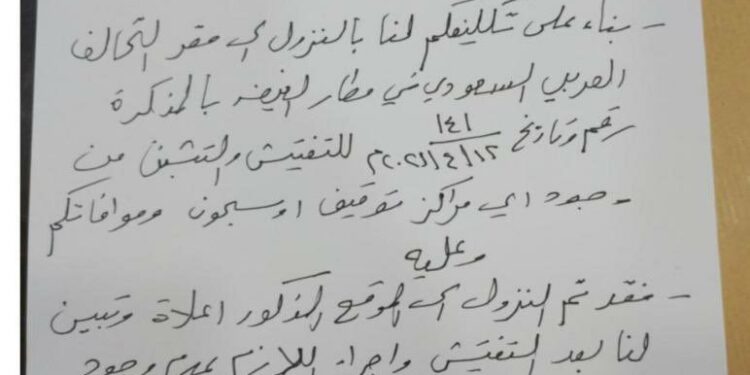 - بناء على تكليفكم لنا بالنزول الى مقر التحالف
العربي السعودي في مطار الغيضه بالمذكرة
رقم وتاريخ ١٤١ / ١٢/٤/٢٠٢١م للتفتيش والتثبت من
وجود اي مراكز توقيف او سجون وموافاتكم
وعليه
- فقد تم النزول الى الموقع المذكور اعلاة وتبين
لنا بعد التفتيش واجراء اللازم بعدم وجود